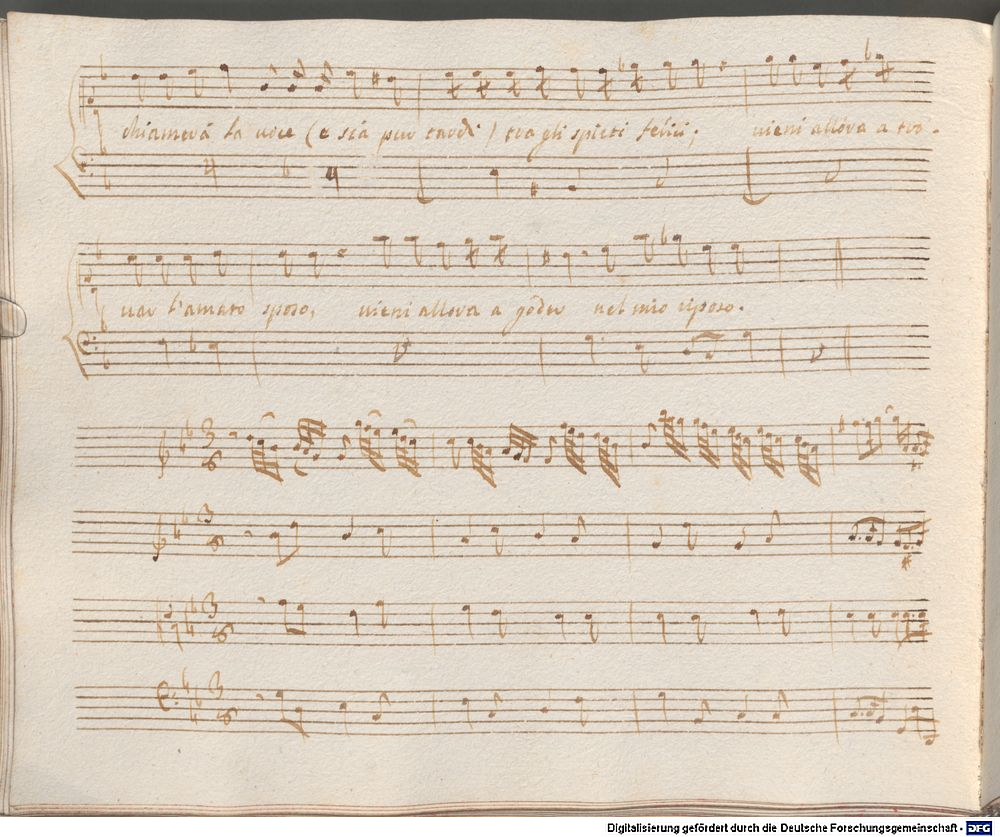 chiamerà la voce (e sia pur tardi) tra gli spirti felici; vieni allora a tro-
var l'amato sposo, vieni allora a goder nel mio riposo.
Digitalisierung gefördert durch die Deutsche Forschungsgemeinschaft - DFG